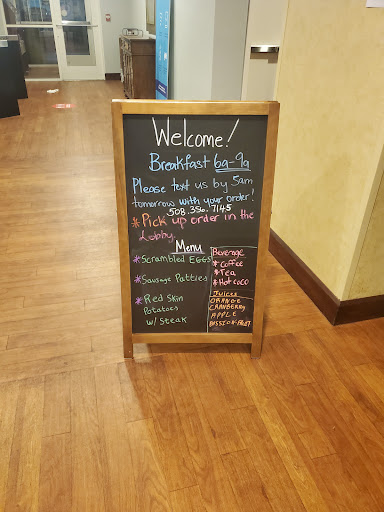 Welcome!
Breakfast 6a-9a
Please text us by 5am
tomorrow with your order!
508.356.7145
*Pick up order in the
Lobby.
Menu
*Scrambled EGGS
*Sausage Patties
*Red Skin
Potatoes
w/ Steak
Beverage
*Coffee
*Tea
*Hot coco
Juices
ORANGE
CRANBERRY
APPLE
PASSION-FRUIT